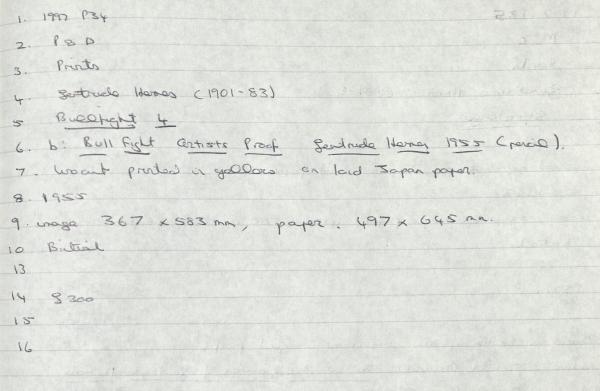 1. 1992 P34
2. P & D
3. Prints
4. Gertrude Hermes (1901-83)
5 Bullfight 4
6. b: Bull fight Artists Proof Gertrude Hermes 1955 (pencil).
7. printed in yellow on laid Japan paper.
8. 1955
9. image 367 x 583 mm, paper. 497 x 645 mm.
10 British
13
14 £300
15
16